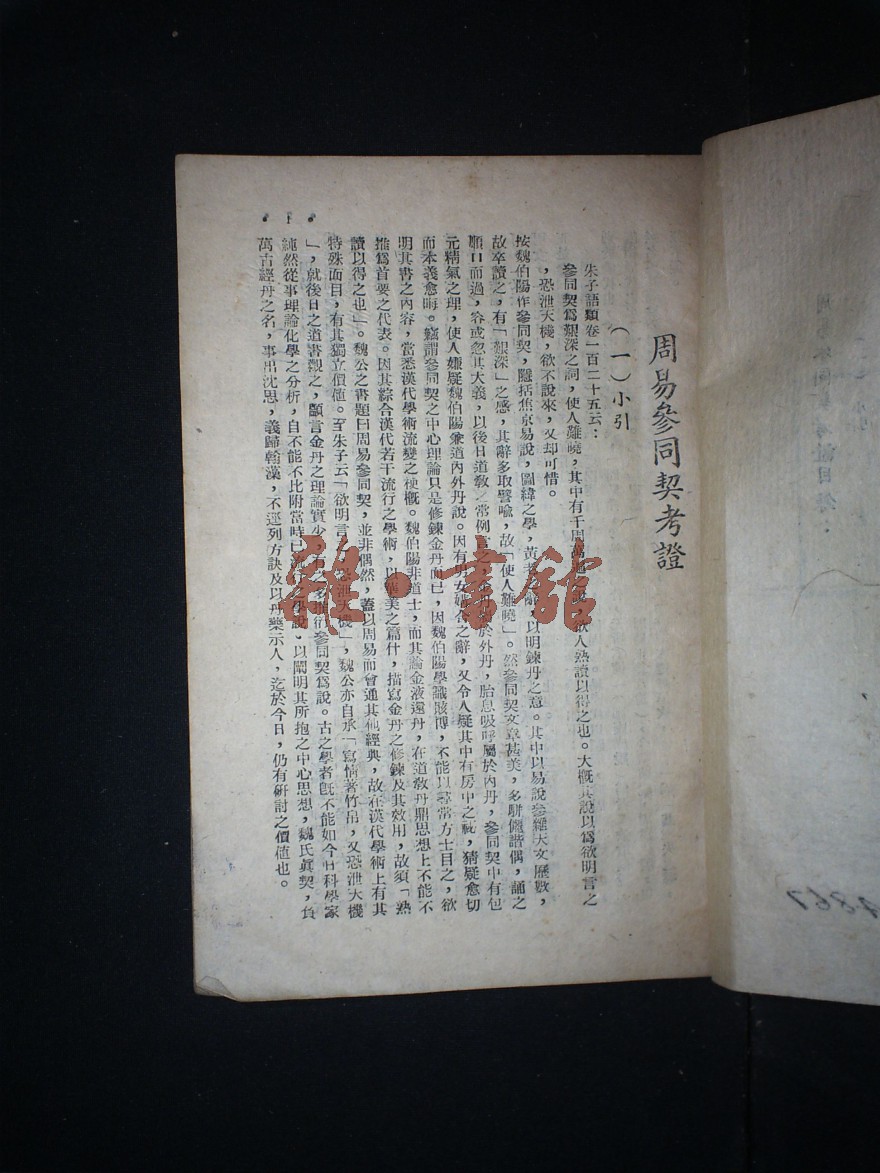 周易參同契考證
（一）小引
朱子語類卷一百二十五云：
參同契爲艱深之詞，使人難曉，其中有千周萬遍之說，欲人熟讀以得之也。大概其說以爲欲明言之
，恐泄天機，欲不說來，又却可惜。
按魏伯陽作參同契，隱括焦京易說，圖緯之學，黃老之辭，以明鍊丹之意。其中以易說參雜天文歷數，
故卒讀之，有「艱深」之感，其辭多取譬喩，故「使人難曉」。然參同契文章甚美，多騈儷諧偶，誦之
順口而過，容或忽其大義，以後日道敎之常例言之，金丹屬於外丹，胎息吸呼屬於內丹，參同契中有包
元精氣之理，使人嫌疑魏伯陽兼道內外丹說。因有男女媾合之辭，又令人疑其中有房中之祕，猜疑愈切
而本義愈晦。竊謂參同契之中心理論只是修鍊金丹而已，因魏伯陽學識賅博，不能以尋常方士目之，欲
明其書之內容，當悉漢代學術流變之梗槪。魏伯陽非道士，而其論金液還丹，在道敎丹鼎思想上不能不
推爲首要之代表。因其綜合漢代若干流行之學術，以華美之篇什，描寫金丹之修鍊及其效用，故須「熟
讀以得之也」。魏公之書題曰周易參同契，並非偶然，蓋以周易而會通其他經典，故在漢代學術上有其
特殊面目，有其獨立價値。至朱子云「欲明言之，恐泄天機」，魏公亦自承「寫情著竹帛，又恐泄天機
」，就後日之道書觀之，顯言金丹之理論實少，
參同契爲說。古之學者旣不能如今日科學家
純然從事理論化學之分析，自不能不比附當時已流行之學說，以闡明其所抱之中心思想，魏氏眞契，負
萬古經丹之名，事出沈思，義歸翰藻，不逕列方訣及以丹藥示人，迄於今日，仍有研討之價値也。
• 1 •
雅•書館